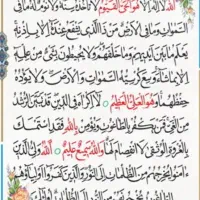 اللَّهُ لَا إِلَٰهَ إِلَّا هُوَ الْحَيُّ الْقَيُّومُ لَا تَأْخُذُهُ سِنَةٌ وَلَا نَوْمٌ لَهُ مَا فِي
السَّمَاوَاتِ وَمَا فِي الْأَرْضِ مَنْ ذَا الَّذِي يَشْفَعُ عِنْدَهُ إِلَّا بِإِذْنِهِ
يَعْلَمُ مَا بَيْنَ أَيْدِيهِمْ وَمَا خَلْفَهُمْ وَلَا يُحِيطُونَ بِشَيْءٍ مِنْ عِلْمِهِ
إِلَّا بِمَا شَاءَ وَسِعَ كُرْسِيُّهُ السَّمَاوَاتِ وَالْأَرْضَ وَلَا يَئُودُهُ
حِفْظُهُمَا وَهُوَ الْعَلِيُّ الْعَظِيمُ لَا إِكْرَاهَ فِي الدِّينِ قَدْ تَبَيَّنَ الرُّشْدُ
مِنَ الْغَيِّ فَمَنْ يَكْفُرْ بِالطَّاغُوتِ وَيُؤْمِنْ بِاللَّهِ فَقَدِ اسْتَمْسَكَ
بِالْعُرْوَةِ الْوُثْقَىٰ لَا انْفِصَامَ لَهَا وَاللَّهُ سَمِيعٌ عَلِيمٌ اللَّهُ وَلِيُّ الَّذِينَ
آمَنُوا يُخْرِجُهُمْ مِنَ الظُّلُمَاتِ إِلَى النُّورِ وَالَّذِينَ كَفَرُوا أَوْلِيَاؤُهُمُ
الطَّاغُوتُ يُخْرِجُونَهُمْ مِنَ النُّورِ إِلَى الظُّلُمَاتِ